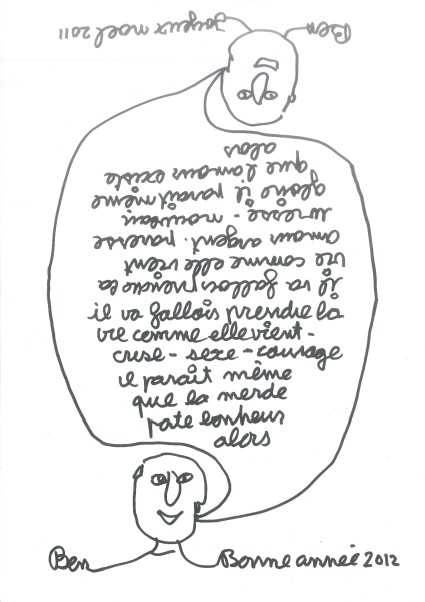 il va falloir prendre la
vie comme elle vient -
crise - sexe - courage
il parait même
que la merde
porte bonheur
alors
Ben Bonne année 2012
il va falloir prendre la
vie comme elle vient
amour argent. paresse
ivresse -
gloire il parait même
que l'amour existe
alors
Ben Joyeux noel 2011